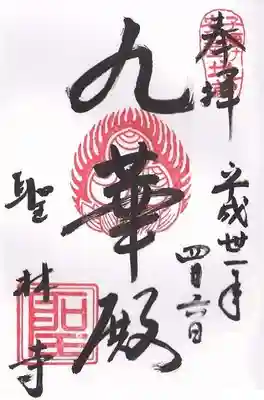 奉拝
平成卅一年
四月六日
九華殿
聖林寺